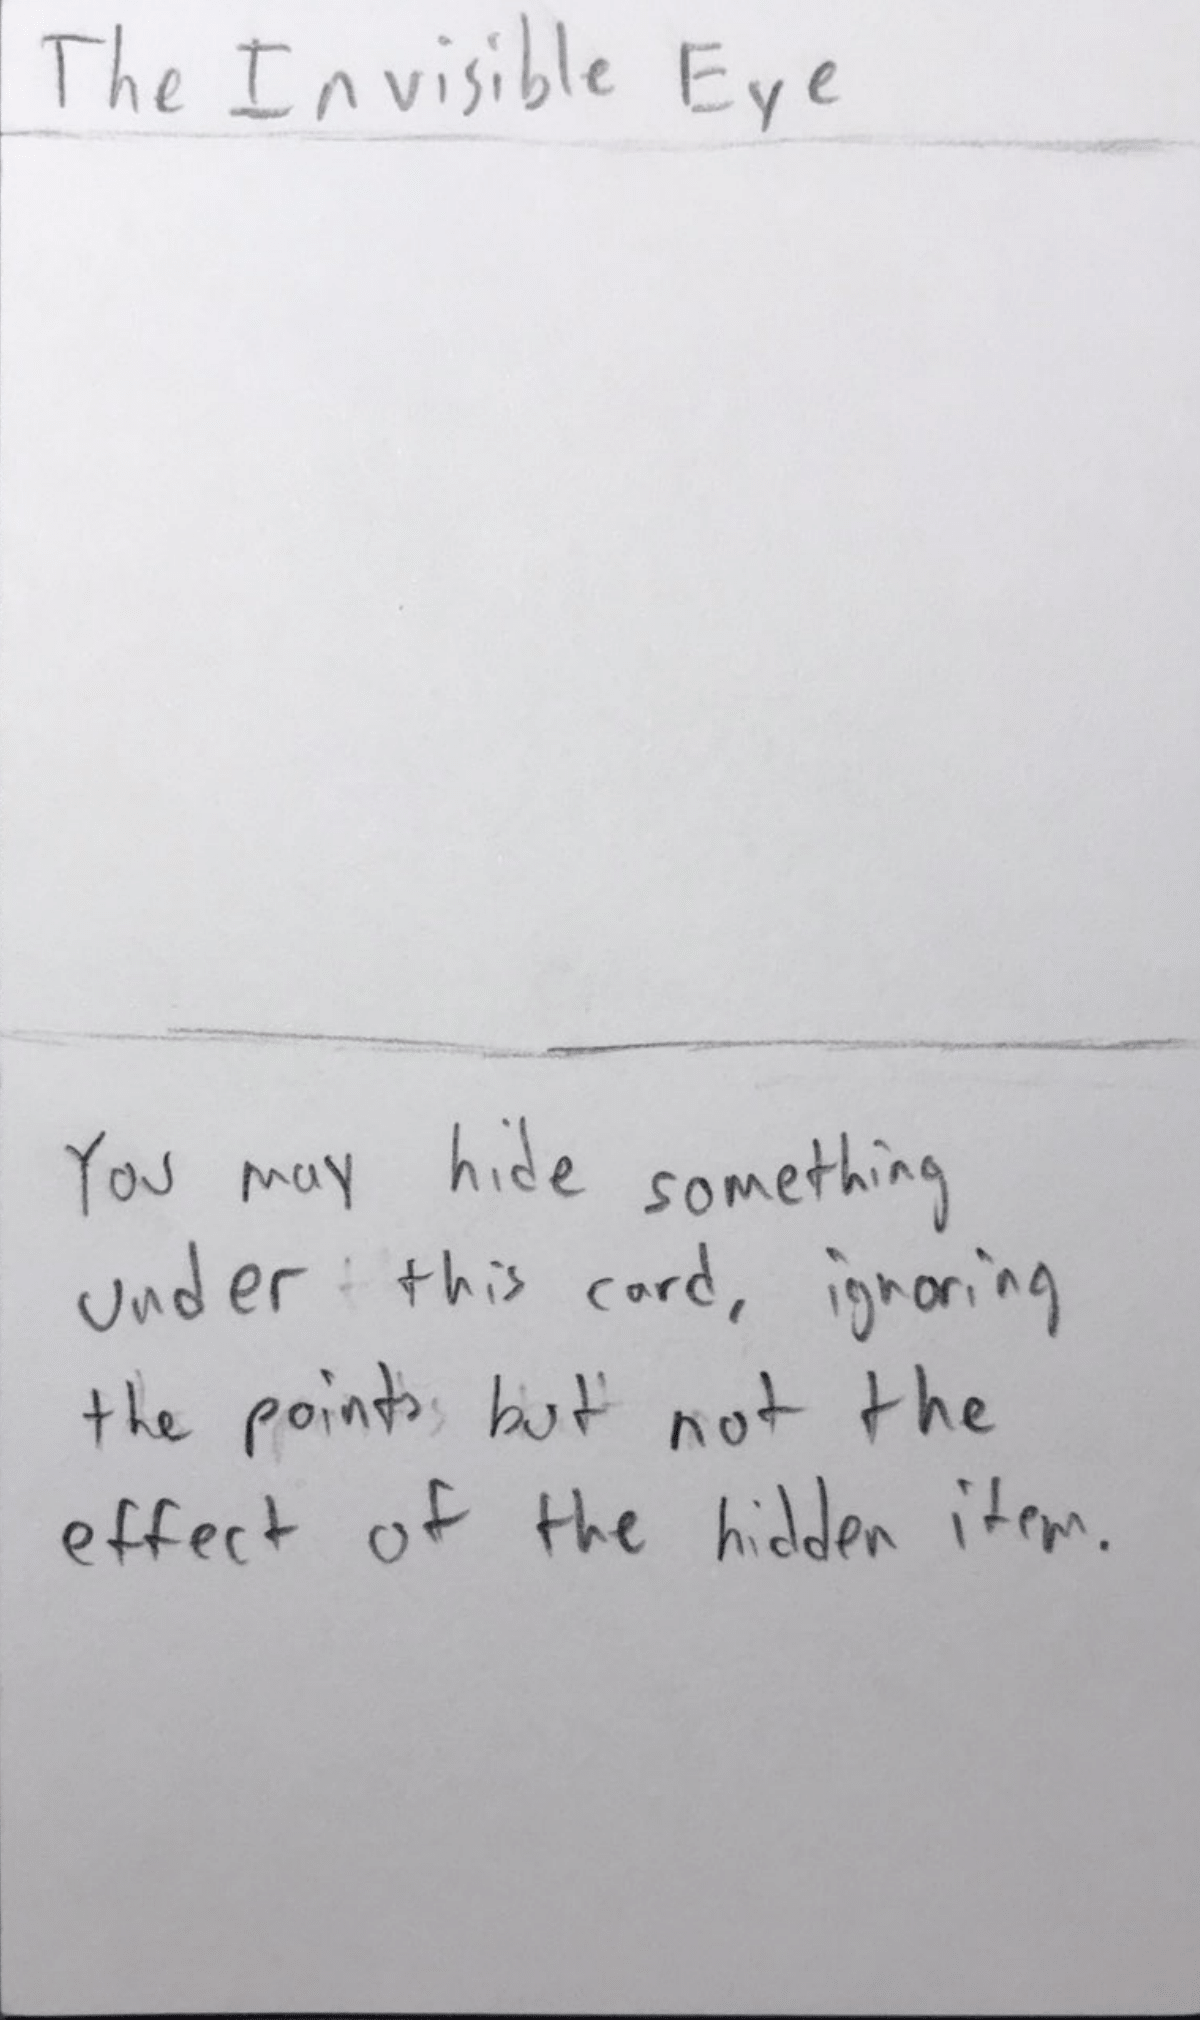 The Invisible Eye
You may hide something
under this card, ignoring
the points but not the
effect of the hidden item.